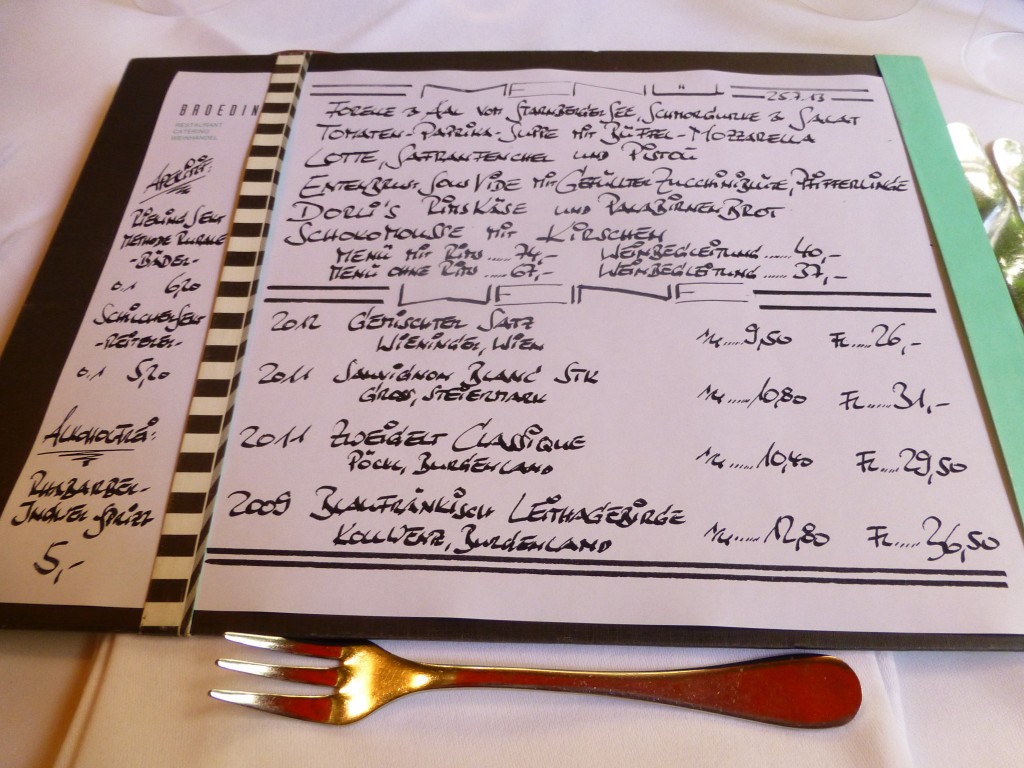 BROEDIN
RESTAURANT
CATERING
WEINHANDEL
APERITIF:
RIESLING SEKT
METHODE RURALE
-BÄDER-
0.1 6,20
SCHILCHERSEKT
-REITERER-
0.1 5,20
ALKOHOLFREI:
RHABARBER-
INGWER SPRIZZ
5,-
MENÜ 25.7.13
FORELLE & AAL VOM STARNBERGER SEE, SCHMORGURKE & SALAT
TOMATEN-PAPRIKA-SUPPE MIT BÜFFEL-MOZZARELLA
LOTTE, SAFRANFENCHEL UND PISTOU
ENTENBRUST SOUS VIDE MIT GEFÜLLTER ZUCCHINIBLÜTE, PFIFFERLINGE
DORLI'S RIMSKÄSE UND PALABIRNENBROT
SCHOKOMOUSSE MIT KIRSCHEN
MENÜ MIT RIMS ..... 74,- WEINBEGLEITUNG ..... 40,-
MENÜ OHNE RIMS ..... 67,- WEINBEGLEITUNG ...... 37,-
WEINE
2012 GEMISCHTER SATZ
WIENINGER, WIEN ..... 9,50 FL ..... 26,-
2011 SAUVIGNON BLANC STK
GROSS, STEIERMARK ...... 10,80 FL ...... 31,-
2011 ZWEIGELT CLASSIQUE
PÖCKL, BURGENLAND ..... 10,40 FL ..... 29,50
2009 BLAUFRÄNKISCH LEITHAGEBIRGE
KOLLWENTZ, BURGENLAND ...... 12,80 FL ..... 36,50